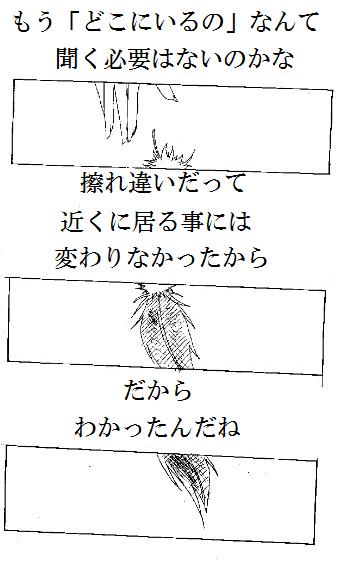 もう「どこにいるの」なんて
聞く必要はないのかな
擦れ違いだって
近くに居る事には
変わりなかったから
だから
わかったんだね